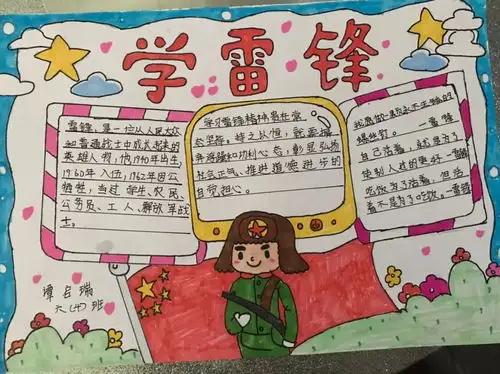 学雷锋
雷锋,是一位从人民大众
和普通战士中成长起来的
英雄人物,他1940年出生,
1960年入伍,1962年因公
牺牲,当过学生、农民、
公务员、工人、解放军战
士。
学习雷锋精神贵在常
态坚持。持之以恒,就要摒
弃浮躁和功利心态,彰显弘扬
社会正气、推进道德进步的
自觉担心。
我愿做一颗永不生锈的
螺丝钉。一雷锋
自己活着,就是为了
使别人过的更好一雷锋
吃饭为了活着,但活
着不是为了吃饭。一雷锋
谭
瑞
六(4)班